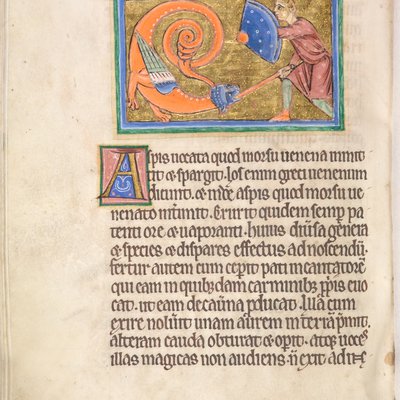 Aspis uocata quod morsu uenena inmit
tit & spargit. Ios enim greci uenenum
dicunt. & inde aspis quod morsu ue
nenato interimit. Currit quidem semper pa
tenti ore & uaporanti. huius diuersa genera
& species & dispares effectus ad nocendum.
fertur autem cum ceperit pati incantatorem
qui eam in quibusdam carminibus propriis euo
cat. ut eam de cauerna producat. Illa cum
exire noluerit unam aurem in terram premit.
alteram cauda obturat & operit. atque uoces
illas magicas non audiens. non exit ad in